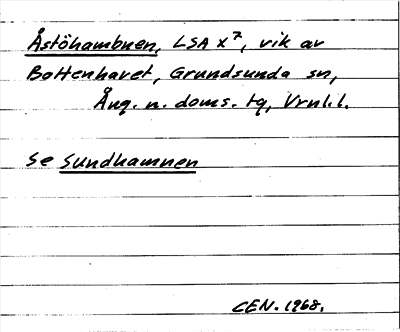 Åstöhambnen, LSA x 7, vik av
Bottenhavet, Grundsunda sn,
Ång. n. doms. tg, Vrnl. l.
Se Sundhamnen
CEN. 1968.